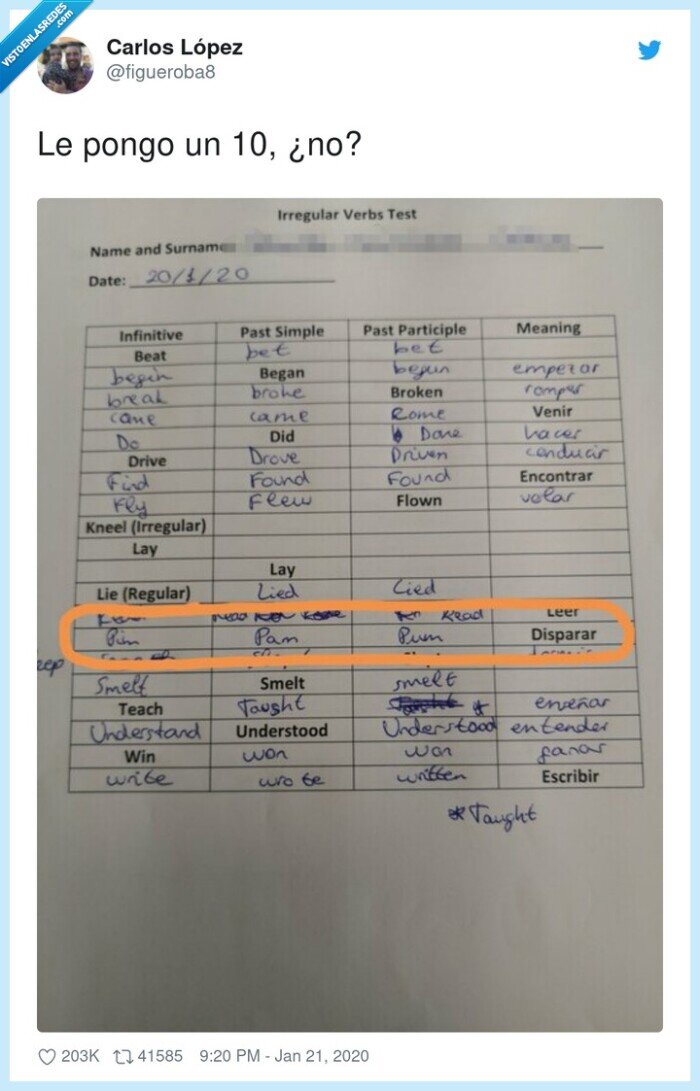 VISTOENLASREDES
.com
Carlos López
@figueroba8
Le pongo un 10, ¿no?
Irregular Verbs Test
Name and Surname
Date: 20/1/20
Infinitive Past Simple Past Participle Meaning
Beat bet bet
begin Began begun empezar
break broke Broken romper
came came Rome Venir
Do Did Done hacer
Drive Drove Driven conducir
Find Found Found Encontrar
Fly Flew Flown volar
Kneel (Irregular)
Lay
Lay
Lie (Regular) Lied Lied
Read Read Leer
Pim Pam Pum Disparar
Smelt Smelt smelt
Teach Taught enseñar
Understand Understood Understood entender
Win won won ganar
write wrote written Escribir
*Taught
203K 41585 9:20 PM - Jan 21, 2020